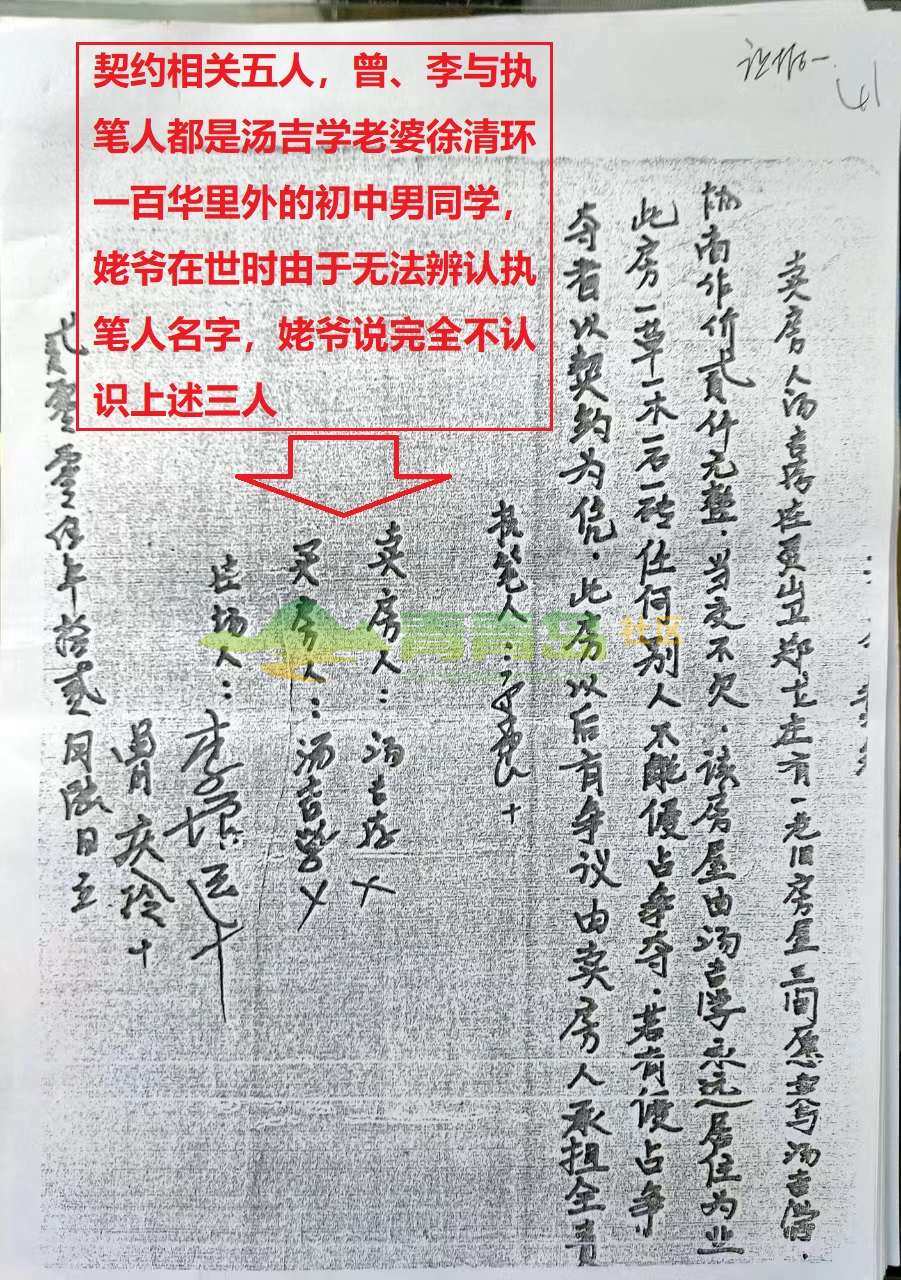 契约相关五人，曾、李与执
笔人都是汤吉学老婆徐清环
一百华里外的初中男同学，
姥爷在世时由于无法辨认执
笔人名字，姥爷说完全不认
识上述三人
证据一
41
卖房人汤吉 在灵山卫郑戈庄有一老旧房屋三间愿卖与汤吉学.
协商作价贰仟元整.当交不欠.该房屋由汤吉学永远居住为业
此房一草一木一石一砖任何别人不能侵占争夺.若有侵占争
夺者以契约为凭.此房以后有争议由卖房人承担全责
执笔人：
卖房人：汤吉
买房人：汤吉学
在场人：李增
庆玲
贰零零伍年拾贰月 日立
青青岛社区